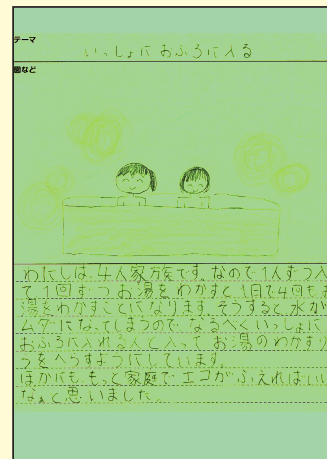 テーマ
いっしょにおふろに入る
図など
わたしは、4人家族です。なので1人ずつ入
て1回ずつお湯をわかすと、1日で4回もお
湯をわかすことになります。そうすると、水が
ムダになってしまうので、なるべくいっしょに
おふろに入れる人と入って、お湯のわかすり
うをへらすようにしています。
ほかにももっと家庭でエコがふえればいい
なぁと思いました。